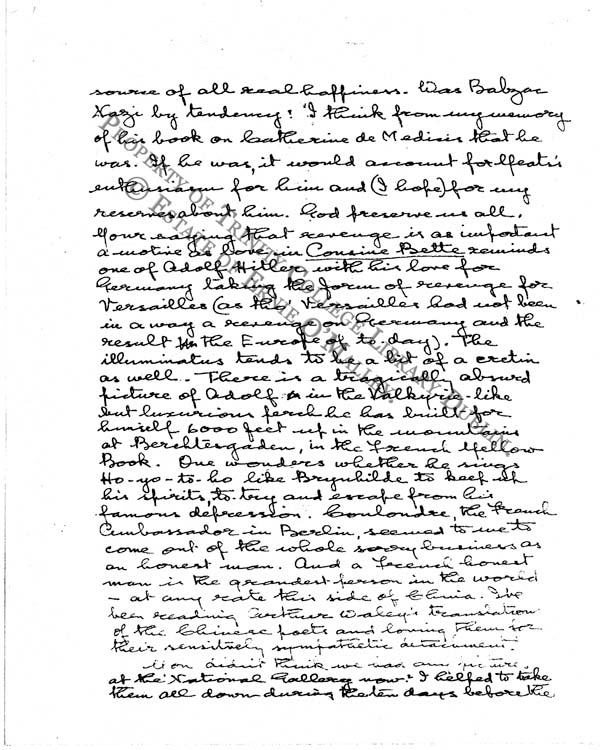 source of all real happiness. Was Balzac
Nazi by tendency? I think from my memory
of his book on Catherine de Medicis that he
was. If he was, it would account for Yeats's
enthusiasm for him and (I hope) for my
reserves about him. God preserve us all.
Your saying that revenge is as important
a motive as love in Cousine Bette reminds
one of Adolf Hitler with his love for
Germany taking the form of revenge for
Versailles (as tho' Versailles had not been
in a way a revenge on Germany and the
result the Europe of to-day). The
illuminatus tends to be a bit of a cretin
as well. There is a tragically absurd
picture of Adolf in the Valkyrie-like
but luxurious perch he has built for
himself 6000 feet up in the mountains
at Berchtesgaden, in the French Yellow
Book. One wonders whether he sings
Ho-yo-to-ho like Brynhilde to keep up
his spirits, to try and escape from his
famous depression. Coulondre, the French
Ambassador in Berlin, seemed to me to
come out of the whole sorry business as
an honest man. And a French honest
man is the grandest person in the world
- at any rate this side of China. I've
been reading Arthur Waley's translation
of the Chinese poets and loving them for
their sensitively sympathetic detachment.
You didn't think we had any pictures
at the National Gallery now? I helped to take
them all down during the ten days before the
PROPERTY OF TRINITY COLLEGE LIBRARY DUBLIN.
© ESTATE OF